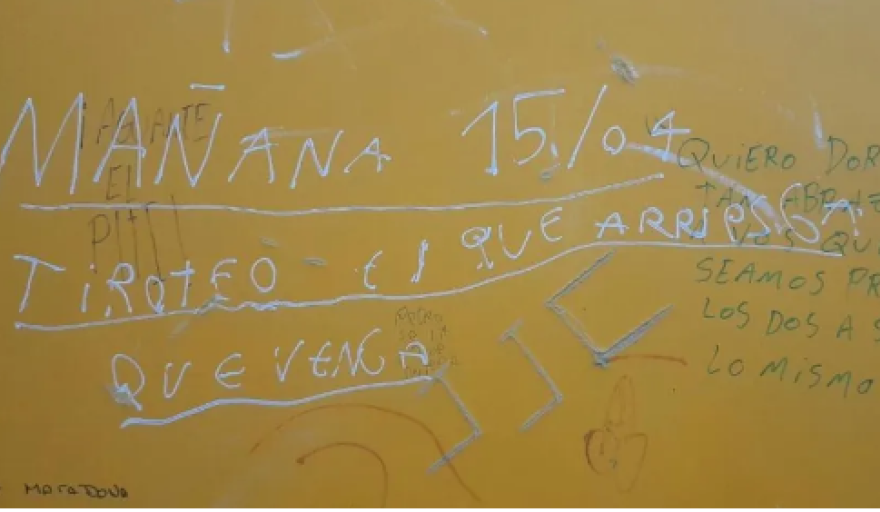 MAÑANA 15/04
TIROTEO - EL QUE ARRIESGA
QUE VENGA
¡AGUANTE
EL
QUIERO DOR
TAN ABRAZ
A VOS QU
SEAMOS PR
LOS DOS A S
LO MISMO